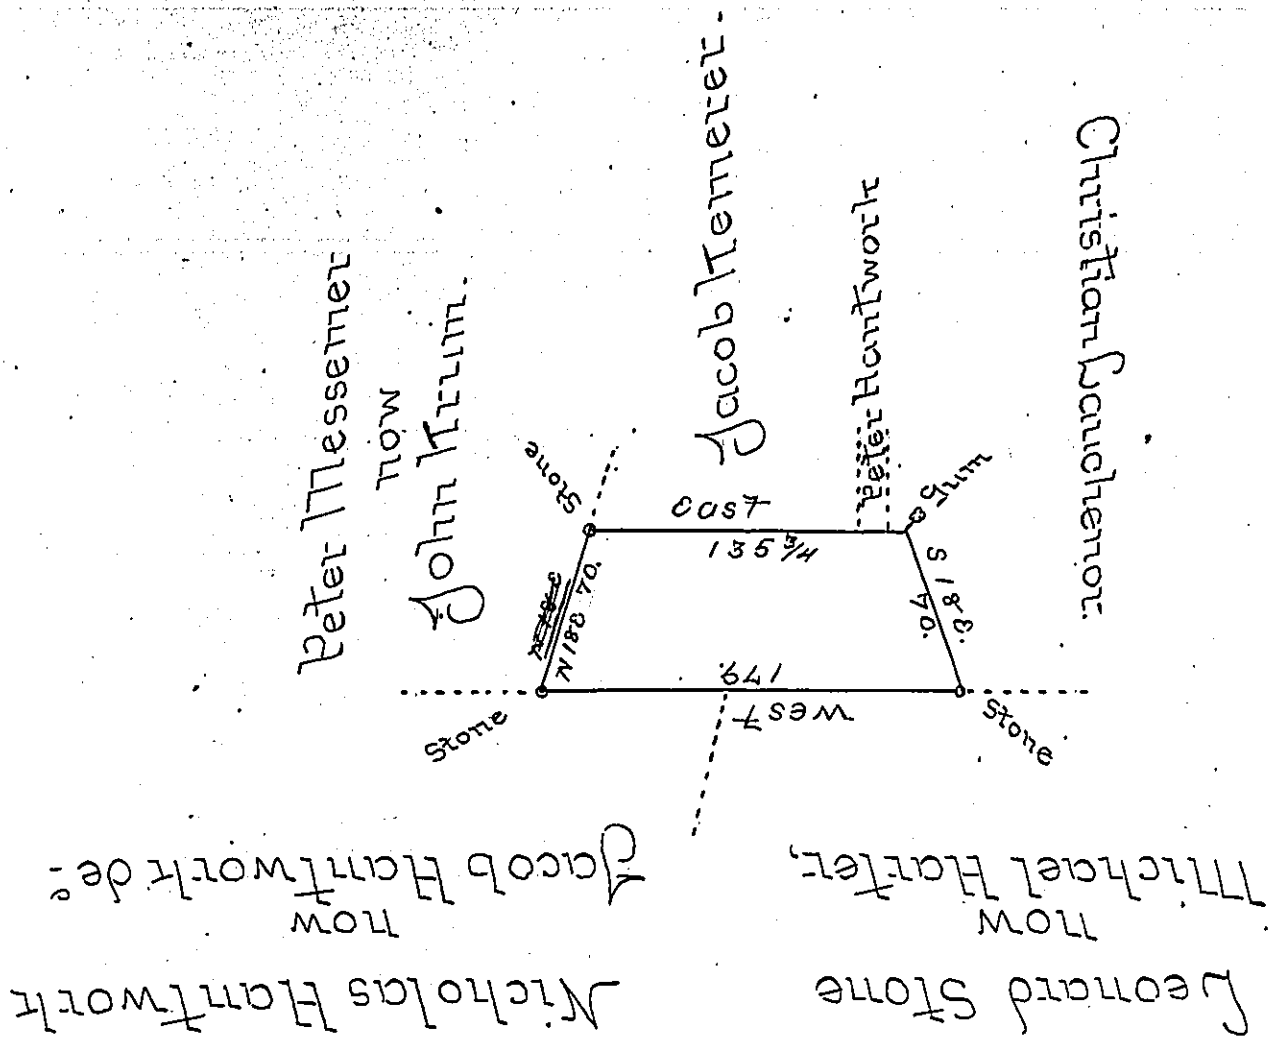 Peter Messemer
now
John Krum.
Jacob Kemerer.
Peter Hantwork
Christian Lauchenor.
Stone
East
135 3/4
Gum
N 18 E
N 18 E 70.
S 18 E.
70.
179.
West
Stone
Stone
Nicholas Hantwork
now
Jacob Hantwork de^c.
Leonard Stone
now
Michael Harter,